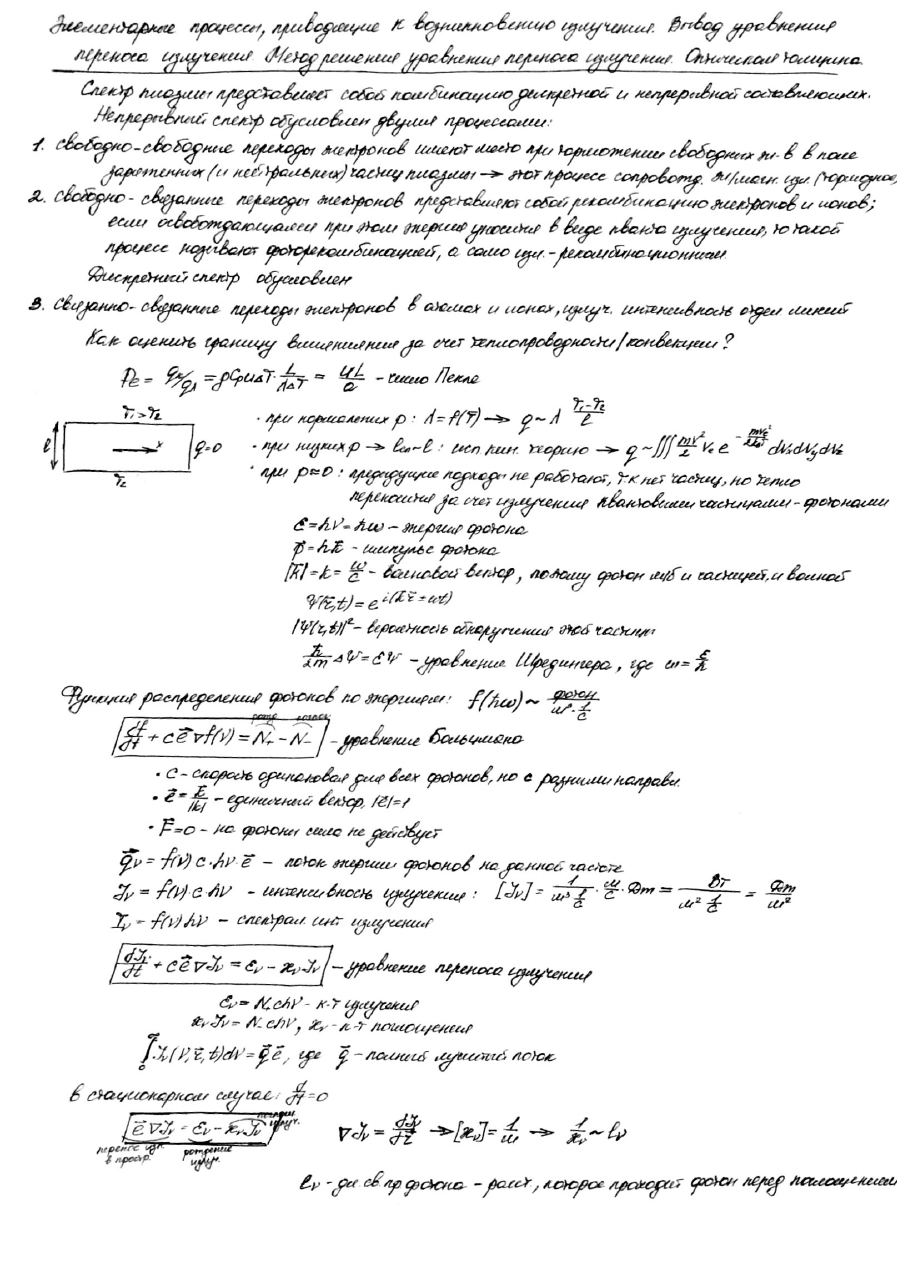 Элементарные процессы, приводящие к возникновению излучения. Вывод уравнения
переноса излучения. Метод решения уравнения переноса излучения. Оптическая толщина.
Спектр плазмы представляет собой комбинацию дискретной и непрерывной составляющих.
Непрерывный спектр обусловлен двумя процессами:
1. Свободно-свободные переходы электронов имеют место при торможении свободных эл-в в поле
заряженных (и нейтральных) частиц плазмы → этот процесс сопровожд. эл/магн. изл. (тормозное)
2. Свободно-связанные переходы электронов представляют собой рекомбинацию электронов и ионов;
если освобождающаяся при этом энергия уносится в виде кванта излучения, то такой
процесс называют фоторекомбинацией, а само изл. - рекомбинационным
Дискретный спектр обусловлен
3. Связанно-связанные переходы электронов в атомах и ионах, излуч. интенсивность отдел линий
Как оценить границу за счет теплопроводности/конвекции?
Pe = qk/qλ = ρCpuΔT · L/λΔT = uL/a - число Пекле
T₁ > T₂
l
x
q=0
T₂
· при нормальных p: λ = f(T) → q ~ λ (T₁-T₂)/l
· при низких p → lсп ~ l : исп кин. теорию → q ~ ∭ mv²/2 vₓ e^(-mv²/2kT) dVₓdVydVz
· при p≈0 : предыдущие подходы не работают, т.к нет частиц, но тепло
переносится за счет излучения квантовыми частицами - фотонами
ε = hν = ħω - энергия фотона
p⃗ = ħk⃗ - импульс фотона
|k⃗| = k = ω/c - волновой вектор, потому фотон явл и частицей, и волной
Ψ(r⃗,t) = e^(i(k⃗r⃗ - ωt))
|Ψ(r,t)|² - вероятность обнаружения этой частицы
ħ/2m ΔΨ = εΨ - уравнение Шредингера, где ω = ε/ħ
Функция распределения фотонов по энергиям: f(ħω) ~ фотон/м³·1/с
df/dt + c e⃗ ∇f(ν) = N₊ - N₋ - уравнение Больцмана
· c - скорость одинаковая для всех фотонов, но с разными направл.
· e⃗ = k⃗/|k| - единичный вектор, |e|=1
· F⃗=0 - на фотоны сила не действует
q⃗ν = f(ν) c·hν·e⃗ - поток энергии фотонов на данной частоте
Jν = f(ν) c·hν - интенсивность излучения: [Jν] = 1/(м³ 1/с) · м/с · Дж = Вт/(м² 1/с) = Дж/м²
Iν = f(ν)hν - спектрал. инт. излучения
dJν/dt + c e⃗ ∇Jν = εν - æν Jν - уравнение переноса излучения
εν = N₊chν - к-т излучения
æν Jν = N₋chν, æν - к-т поглощения
∫₀^∞ Jν(ν,r⃗,t)dν = q⃗e⃗, где q⃗ - полный лучистый поток
В стационарном случае: d/dt=0
e⃗ ∇Jν = εν - æν Jν
поглощ. излуч.
перенос изл. в простр.
рождение излуч.
∇Jν = dJν/dx → [æν] = 1/м → 1/æν ~ lν
lν - дл. св. пр фотона - расст, которое проходит фотон перед поглощением